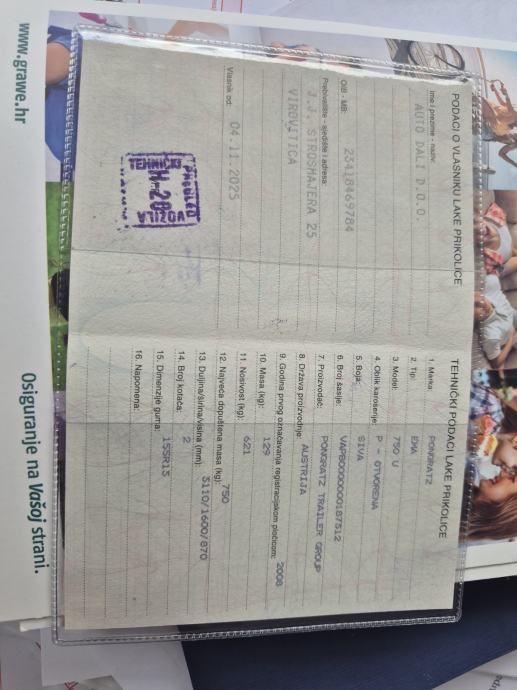 PODACI O VLASNIKU LAKE PRIKOLICE
Ime i prezime - naziv:
AUTO DALI D.O.O.
OIB - MB:
23418469784
Prebivalište - sjedište i adresa:
J.J. ŠTROSMAJERA 25
VIROVITICA
Vlasnik od: 04.11.2025
TEHNIČKI
PREGLED
H-28
VOZILA
TEHNIČKI PODACI LAKE PRIKOLICE
1. Marka: PONGRATZ
2. Tip: EMA
3. Model: 750 U
4. Oblik karoserije: P - OTVORENA
5. Boja: SIVA
6. Broj šasije: VAPB0000000187512
7. Proizvođač: PONGRATZ TRAILER GROUP
8. Država proizvodnje: AUSTRIJA
9. Godina prvog označavanja registracijskom pločicom: 2008
10. Masa (kg): 129
11. Nosivost (kg): 621
12. Najveća dopuštena masa (kg): 750
13. Duljina/širina/visina (mm): 3110/1600/870
14. Broj kotača: 2
15. Dimenzije guma: 155R13
16. Napomena:
www.grawe.hr
Osiguranje na Vašoj strani.